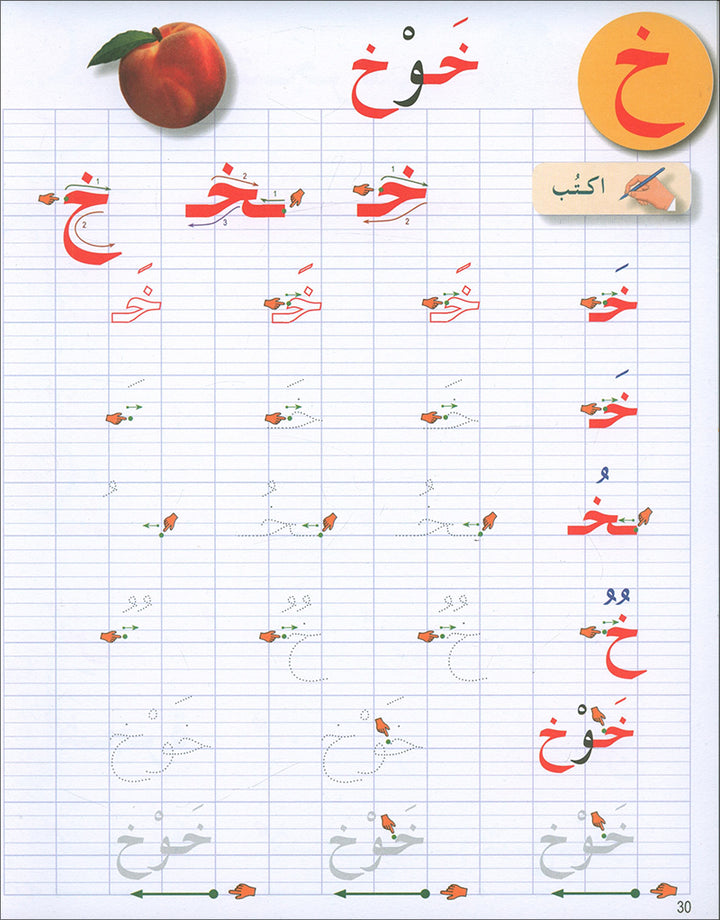 خ خَوْخ
اكتُب
خـ ـخـ خ
1 2 1 2 3 1 2
خَـ خَـ خَـ خَـ
خَـ خَـ خَـ ـَ
ـخُـ ـخُـ ـخُـ ـُ
خٌ خٌ خٌ ـٌ
خَوْخ خَوْخ خَوْخ
خَوْخ خَوْخ خَوْخ
30